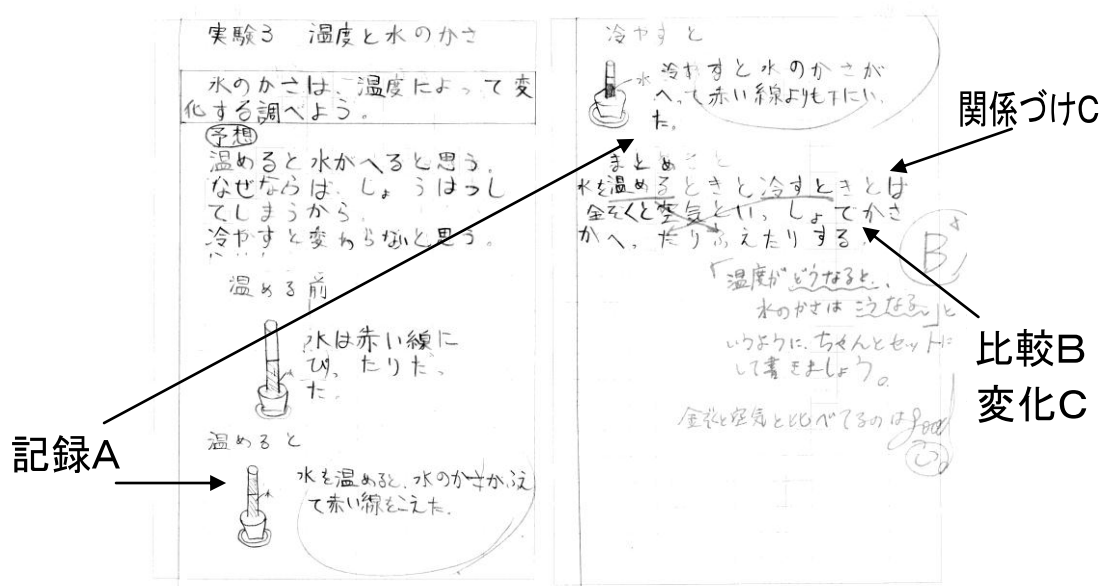 実験3 温度と水のかさ
水のかさは、温度によって変
化する調べよう。
予想
温めると水がへると思う。
なぜならば、じょうはつし
てしまうから。
冷やすと変わらないと思う。
温める前
水は赤い線に
ぴったりだっ
た。
温めると
水を温めると、水のかさがふえ
て赤い線をこえた。
記録A
冷やすと
水
冷やすと水のかさが
へって赤い線よりも下にい
た。
まとめ
水を温めるときと冷すときとは
金ぞくと空気といっしょでかさ
がへったりふえたりする。
B
「温度がどうなると、
水のかさは
」と
いうように、ちゃんとセットに
して書きましょう。
金ぞくと空気と比べてるのはgood
関係づけC
比較B
変化C